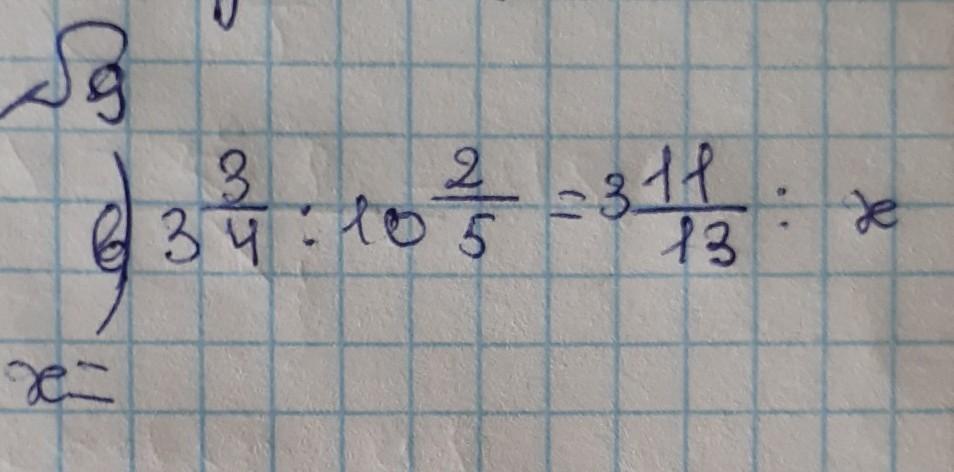 √9
в) 3 3/4 : 10 2/5 = 3 11/13 : x
x=